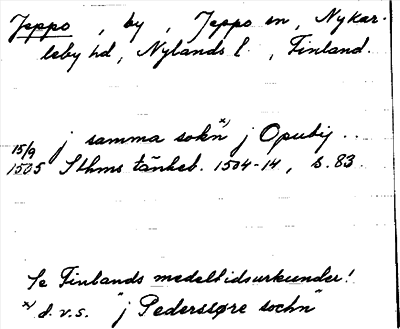 Jeppo, by, Jeppo sn, Nykar-
leby hd, Nylands l., Finland.
j samma sokn x) j Opubij ..
15/9
1505 Sthms tänkeb. 1504-14, s. 83.
Se Finlands medeltidsurkunder!
x) d.v.s. "j Pedersøre sochn"